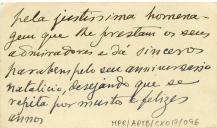 pela justissima homena-
gem que lhe prestam os seus
admiradores e dá sinceros
parabens pelo seu anniversario
natalicio, desejando que se
repita por muitos e felizes
annos
MPR/APTD/CX019/096